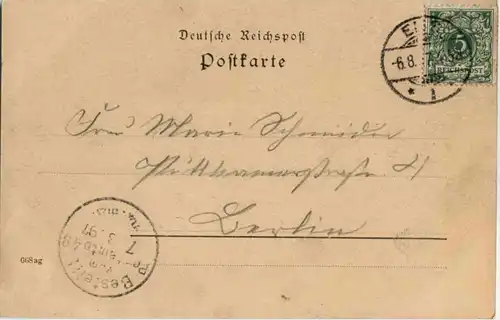 Deutsche Reichspost
Postkarte
-6.8.
* 1
5
Frau Marie Schneider
Püttkamerstraße
Berlin
Bestellt
vom
Postamte
7
3. 97
068ag